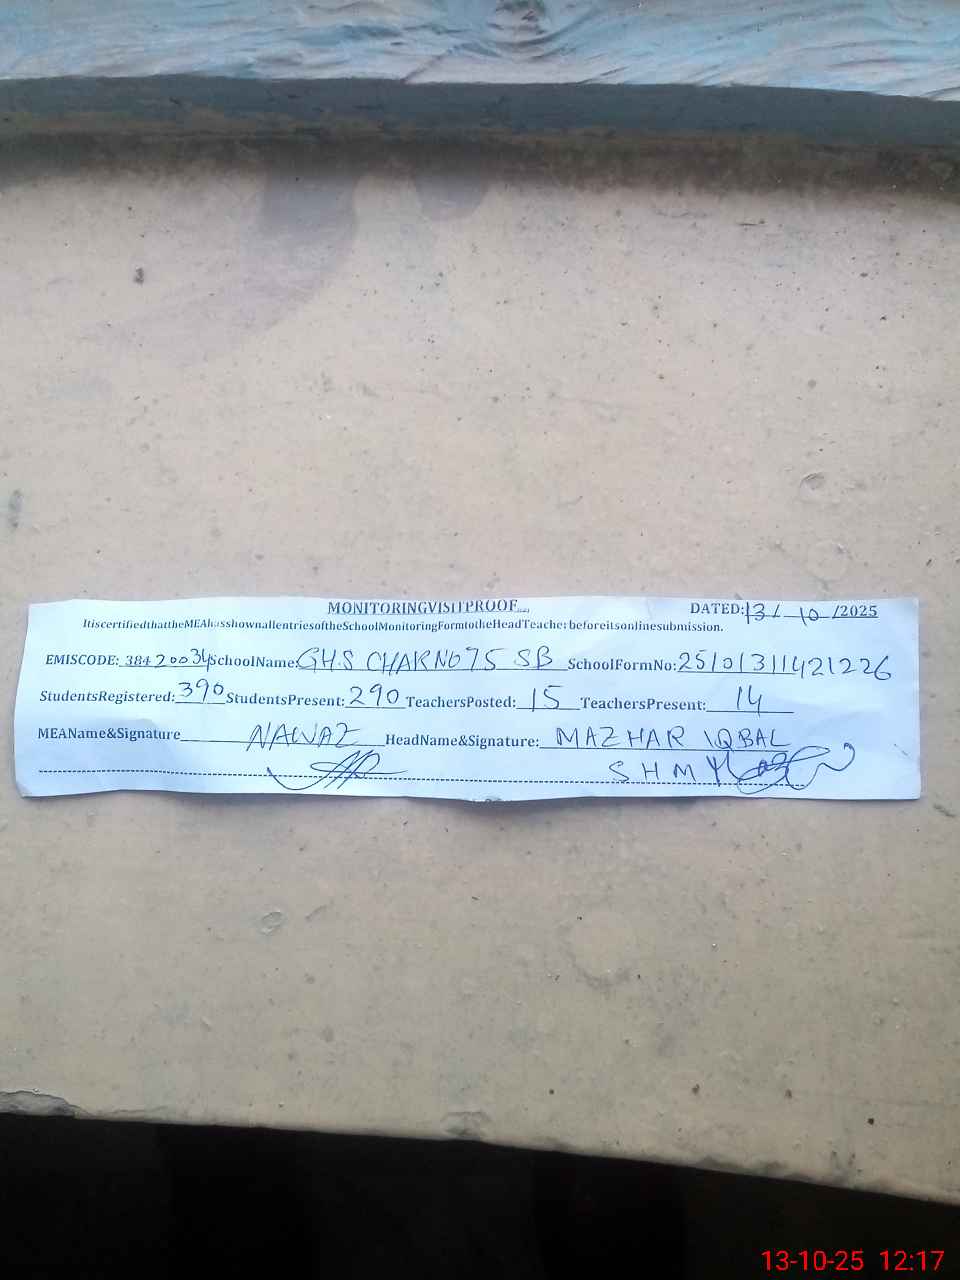 MONITORINGVISITPROOF
DATED:13/ 10 /2025
ItiscertifiedthattheMEAhasshownallentriesoftheSchoolMonitoringFormtotheHeadTeacherbeforeitsonlinesubmission.
EMISCODE: 38420034 SchoolName: GHS CHAK NO 75 SB SchoolFormNo: 25101311421226
StudentsRegistered: 390 StudentsPresent: 290 TeachersPosted: 15 TeachersPresent: 14
MEAName&Signature NAWAZ HeadName&Signature: MAZHAR IQBAL
SHM
13-10-25 12:17